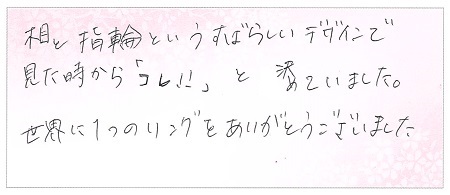 相と指輪というすばらしいデザインで
見た時から「コレ!!」と決めていました。
世界に1つのリングをありがとうございました